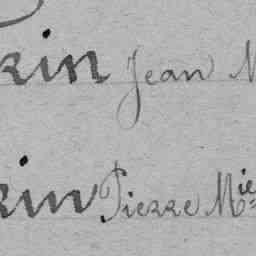 kin Jean M
kin Pierre Mie